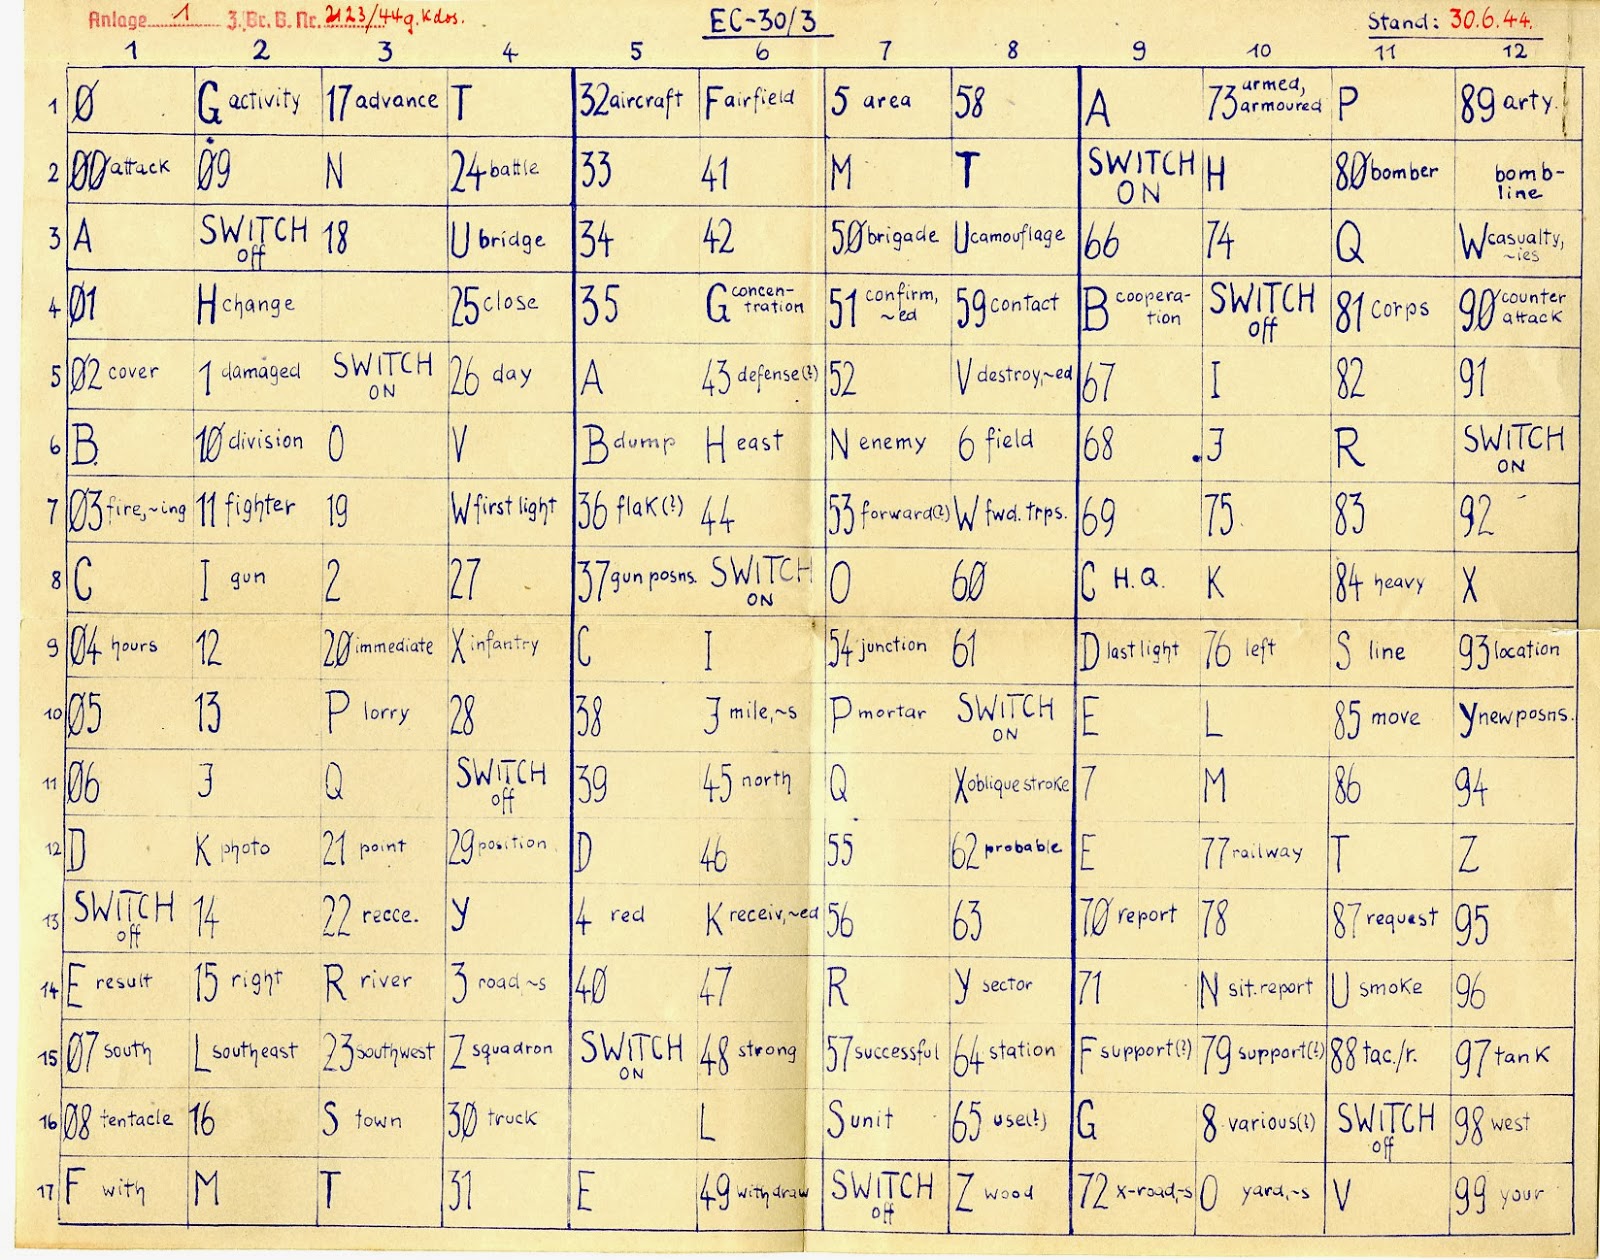 Anlage 1 3. Br. B. Nr. 2123/44 g.Kdos. EC-30/3 Stand: 30.6.44.
1 2 3 4 5 6 7 8 9 10 11 12
1 Ø G activity 17 advance T 32 aircraft Fairfield 5 area 58 A 73 armed, armoured P 89 arty.
2 ØØ attack Ø9 N 24 battle 33 41 M T SWITCH ON H 8Ø bomber bomb-line
3 A SWITCH off 18 U bridge 34 42 5Ø brigade U camouflage 66 74 Q W casualty, ~ies
4 Ø1 H change 25 close 35 G concen-tration 51 confirm, ~ed 59 contact B coopera-tion SWITCH off 81 corps 9Ø counter attack
5 Ø2 cover 1 damaged SWITCH ON 26 day A 43 defense(?) 52 V destroy,~ed 67 I 82 91
6 B. 1Ø division O V B dump H east N enemy 6 field 68 J R SWITCH ON
7 Ø3 fire,~ing 11 fighter 19 W first light 36 flak(?) 44 53 forward(?) W fwd. trps. 69 75 83 92
8 C I gun 2 27 37 gun posns. SWITCH ON O 6Ø C H.Q. K 84 heavy X
9 Ø4 hours 12 2Ø immediate X infantry C I 54 junction 61 D last light 76 left S line 93 location
10 Ø5 13 P lorry 28 38 J mile,~s P mortar SWITCH ON E L 85 move Y new posns.
11 Ø6 J Q SWITCH off 39 45 north Q X oblique stroke 7 M 86 94
12 D K photo 21 point 29 position D 46 55 62 probable E 77 railway T Z
13 SWITCH off 14 22 recce. Y 4 red K receiv,~ed 56 63 7Ø report 78 87 request 95
14 E result 15 right R river 3 road,~s 4Ø 47 R Y sector 71 N sit.report U smoke 96
15 Ø7 south L southeast 23 southwest Z squadron SWITCH ON 48 strong 57 successful 64 station F support(?) 79 support(?) 88 tac./r. 97 tank
16 Ø8 tentacle 16 S town 3Ø truck L S unit 65 use(?) G 8 various(?) SWITCH off 98 west
17 F with M T 31 E 49 withdraw SWITCH off Z wood 72 x-road,~s O yard,~s V 99 your